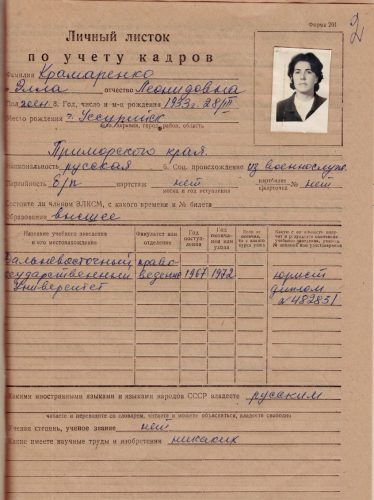 Форма 201
2
Личный листок
по учету кадров
Фамилия Крамаренко
Элла отчество Леонидовна
Пол жен. 3. Год, число и м-ц рождения 1933 г. 28/III
Место рождения г. Уссурийск
село, деревня, город, район, область
Приморского края.
Национальность русская 6. Соц. происхождение из военнослуж.
Партийность б/п партстаж нет партбилета № нет
месяц и год вступления
карточки
Состоите ли членом ВЛКСМ, с какого времени и № билета
Образование высшее
Название учебного заведения и его местонахождение
Факультет или отделение
Год поступления
Год окончания или ухода
Если не окончил, то с какого курса ушел
Дальневосточный право- 1967 1972 юрист
государственный ведение диплом
Университет № 482851
Какими иностранными языками и языками народов СССР владеете русским
читаете и переводите со словарем, читаете и можете объясняться, владеете свободно
Ученая степень, ученое звание нет
Какие имеете научные труды и изобретения никаких